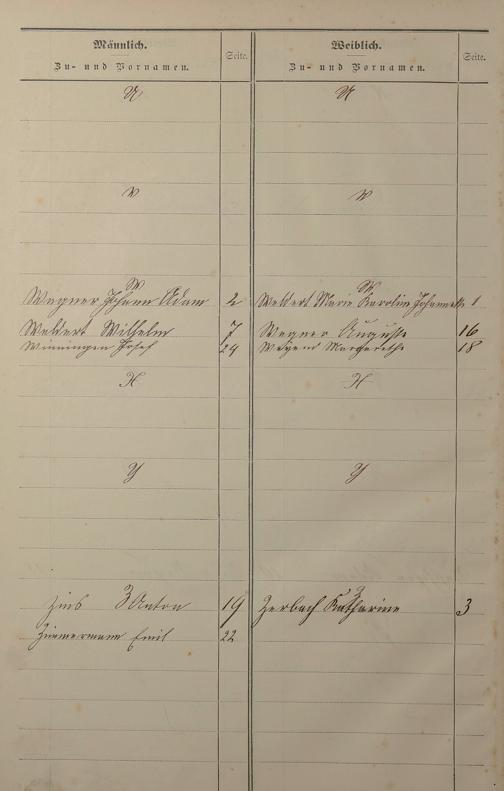 Männlich.
Zu- und Vornamen.
Seite.
Weiblich.
Zu- und Vornamen.
Seite.
U
U
V
V
W
W
Wagner Johann Adam 2
Weldert Marie Karolin Johannette 1
Weldert Wilhelm 7
Wagner Auguste 16
Winningen Josef 24
Margarethe 18
X
X
Y
Y
Z
Z
Zins Anton 19
Zerbach Katharine 3
Zimmermann Emil 22